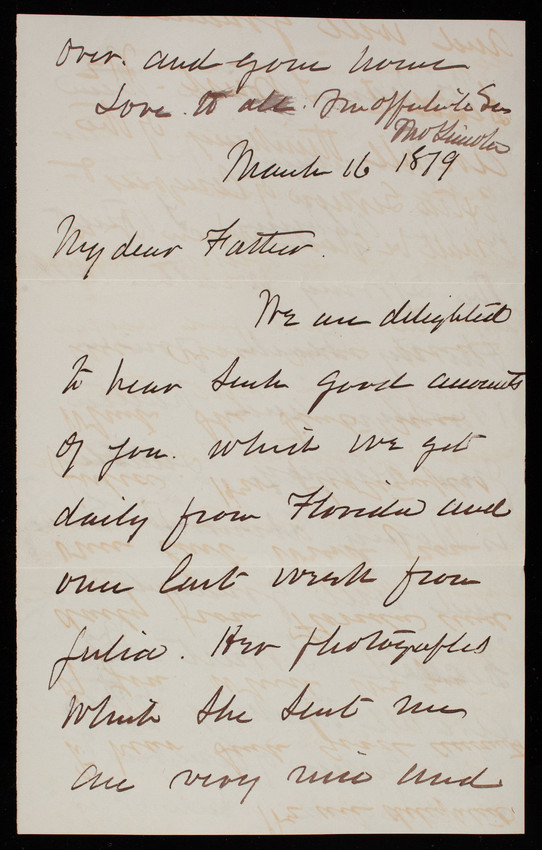 over. and your home
Love to all. Your affectionate Son
Tho Lincoln
March 16 1879
My dear Father.
We are delighted
to hear such good accounts
of you. which we get
daily from Florida and
one last week from
Julia. Her photographs
which she sent me
are very nice and